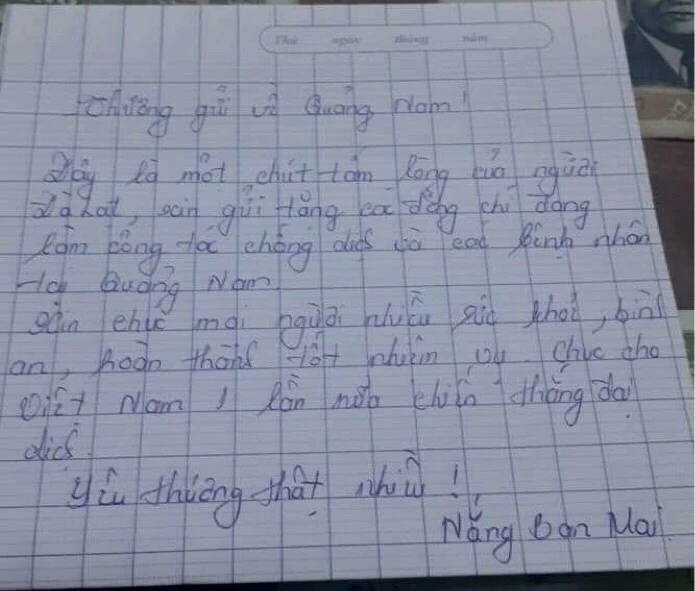 Thứ ngày tháng năm
Thương gửi về Quảng Nam!
Đây là một chút tấm lòng của người
Đà Lạt, xin gửi tặng các đồng chí đang
làm công tác chống dịch và các bệnh nhân
tại Quảng Nam
Xin chúc mọi người nhiều sức khoẻ, bình
an, hoàn thành tốt nhiệm vụ. Chúc cho
Việt Nam 1 lần nữa chiến thắng đại
dịch.
Yêu thương thật nhiều!
Nắng Ban Mai.